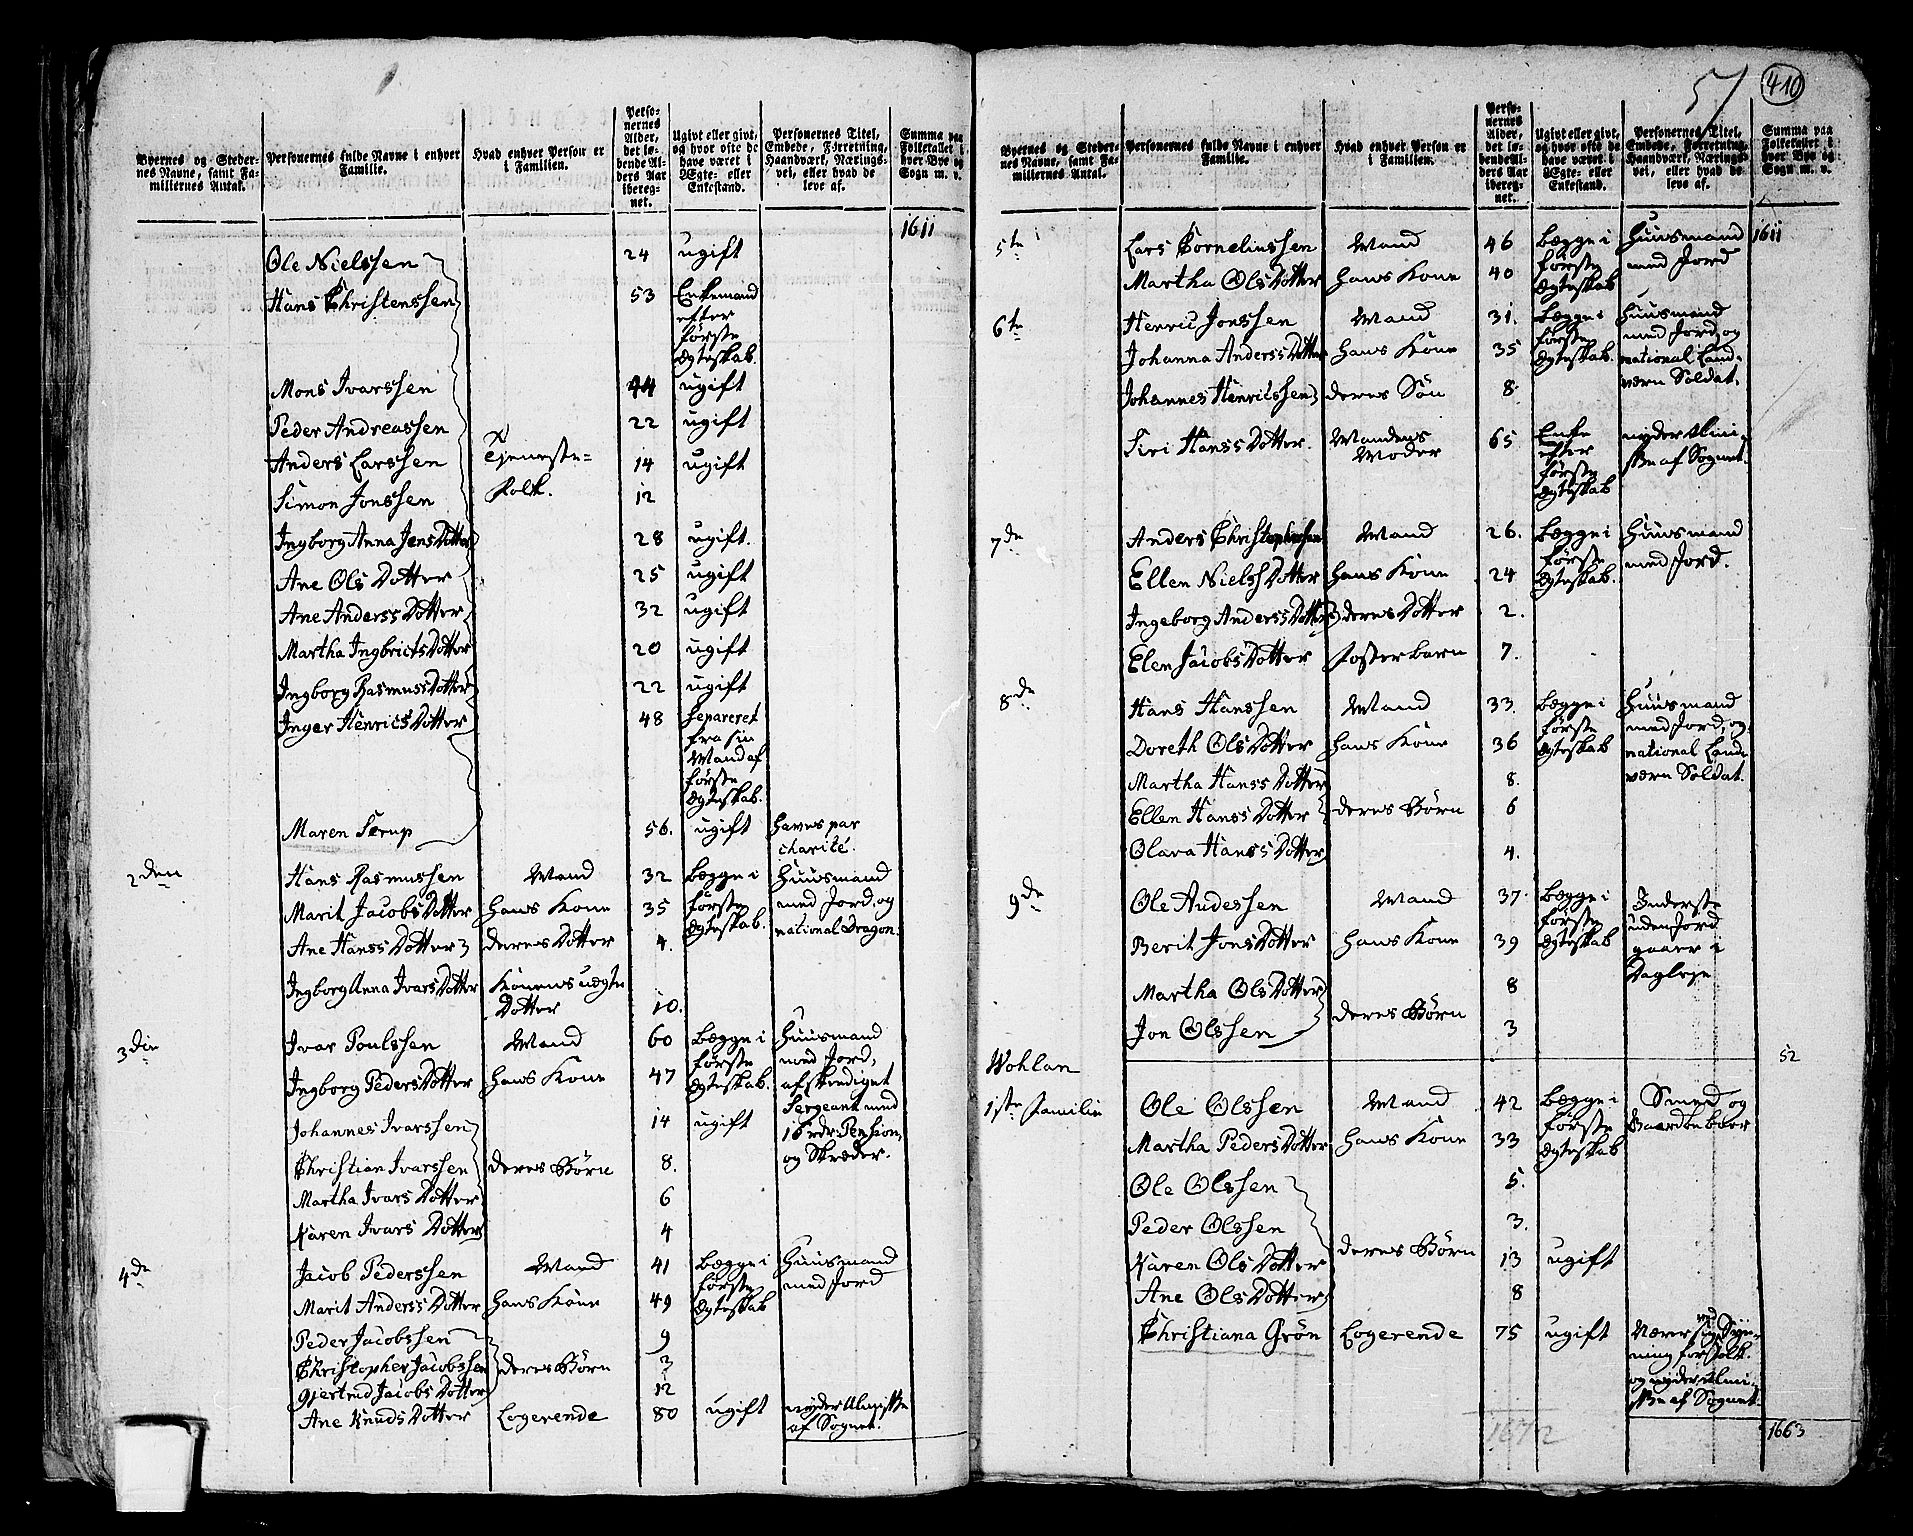 57
410
Byernes og Stedernes Navne, samt Familiernes Antal.
Personernes fulde Navne i enhver Familie.
Hvad enhver Person er i Familien.
Personernes Alder, det løbende Alders Aar iberegnet.
Ugivt eller givt, og hvor ofte de have været i Ægte- eller Enkestand.
Personernes Titel, Embede, Forretning, Haandværk, Næringsvei, eller hvad de leve af.
Summa paa Folketallet i hver Bye og Sogn m. v.
1611
Ole Nielssen 24 ugift
Hans Christenssen 53 Enkemand
efter
første
Ægteskab.
Mons Ivarssen 44 ugift
Peder Andreassen 22 ugift
Anders Larssen Tjeneste- 14 ugift
Simon Jonssen Folk. 12
Ingborg Anna JensDotter 28 ugift.
Ane Ols Dotter 25 ugift
Ane Anderss Dotter 32 ugift
Martha IngbrictsDotter 20 ugift
Ingborg RasmussDotter 22 ugift
Inger HenricsDotter 48 separeret
fra sin
Mand af
første
Ægteskab.
Maren Særup 56. ugift haves par
charité.
2den Hans Rasmussen Mand 32 Begge i Huusmand
Marit JacobsDotter hans Kone 35 første med Jord, og
Ane Hanss Dotter deres Dotter 4. Ægteskab. national Dragon.
Ingborg Anna IvarsDotter Konens uægte
Dotter 10.
3die Ivar Poulssen Mand 60 Begge i Huusmand
første med Jord,
Ingborg PedersDotter hans Kone 47 Ægteskab. afskediget
Johannes Ivarssen 14 ugift Sergeant med
16 rdr. Pension,
Christian Ivarssen deres Børn 8. og Skræder.
Martha Ivars Dotter 6
Karen Ivars Dotter 4
4de Jacob Pederssen Mand 41 Begge i Huusmand
første med Jord
Marit Anderss Dotter hans Kone 49 Ægteskab
Peder Jacobssen 9
Christopher Jacobssen deres Børn 3
Gjertrud Jacobs Dotter 12
Ane Knuds Dotter Logerende 80 ugift nyder Almisse
af Sognet.
Byernes og Stedernes Navne, samt Familiernes Antal.
Personernes fulde Navne i enhver Familie.
Hvad enhver Person er i Familien.
Personernes Alder, det løbende Alders Aar iberegnet.
Ugivt eller givt, og hvor ofte de have været i Ægte- eller Enkestand.
Personernes Titel, Embede, Forretning, Haandværk, Næringsvei, eller hvad de leve af.
Summa paa Folketallet i hver Bye og Sogn m. v.
5te Lars Corneliussen Mand 46 Begge i Huusmand 1611
første med Jord
Martha OlsDotter hans Kone 40 Ægteskab
6te Henric Jonssen Mand 31. Begge i Huusmand
første med Jord, og
Johanna AnderssDotter hans Kone 35 Ægteskab. national Land-
Johannes Henricssen deres Søn 8. værn Soldat.
Siri HanssDotter. Mandens 65 Enke nyder Almi-
Moder efter sse af Sognet.
første
Ægteskab
7de Anders Christophersen Mand 26. Begge i Huusmand
første med Jord.
Ellen NielssDotter hans Kone 24 Ægteskab.
Ingeborg AnderssDotter deres Dotter 2.
Elen JacobsDotter Fosterbarn 7.
8de Hans Hanssen Mand 33. Begge i Huusmand
første med Jord, og
Doreth Ols Dotter hans Kone 36 Ægteskab national Land-
Martha Hanss Dotter 8. værn Soldat.
Ellen Hanss Dotter deres Børn 6
Olava Hanss Dotter 4.
9de Ole Anderssen Mand 37. Begge i Inderste
første uden Jord
Berit JonsDotter hans Kone 39 Ægteskab gaaer i
Dagleje
Martha OlsDotter 8
deres Børn
Jon Olssen 3
52
Wohlan
1ste Familie Ole Olssen Mand 42 Begge i Smed og
første
Martha PedersDotter hans Kone 33 Ægteskab
Ole Olssen 5.
Peder Olssen 3.
deres Børn
Karen OlsDotter 13 ugift
Ane OlsDotter 8
Christiana Grön Logerende 75 ugift Nærer sig ved Spin-
ning for Folk.
og nyder Almi-
sse af Sognet.
1672
1663